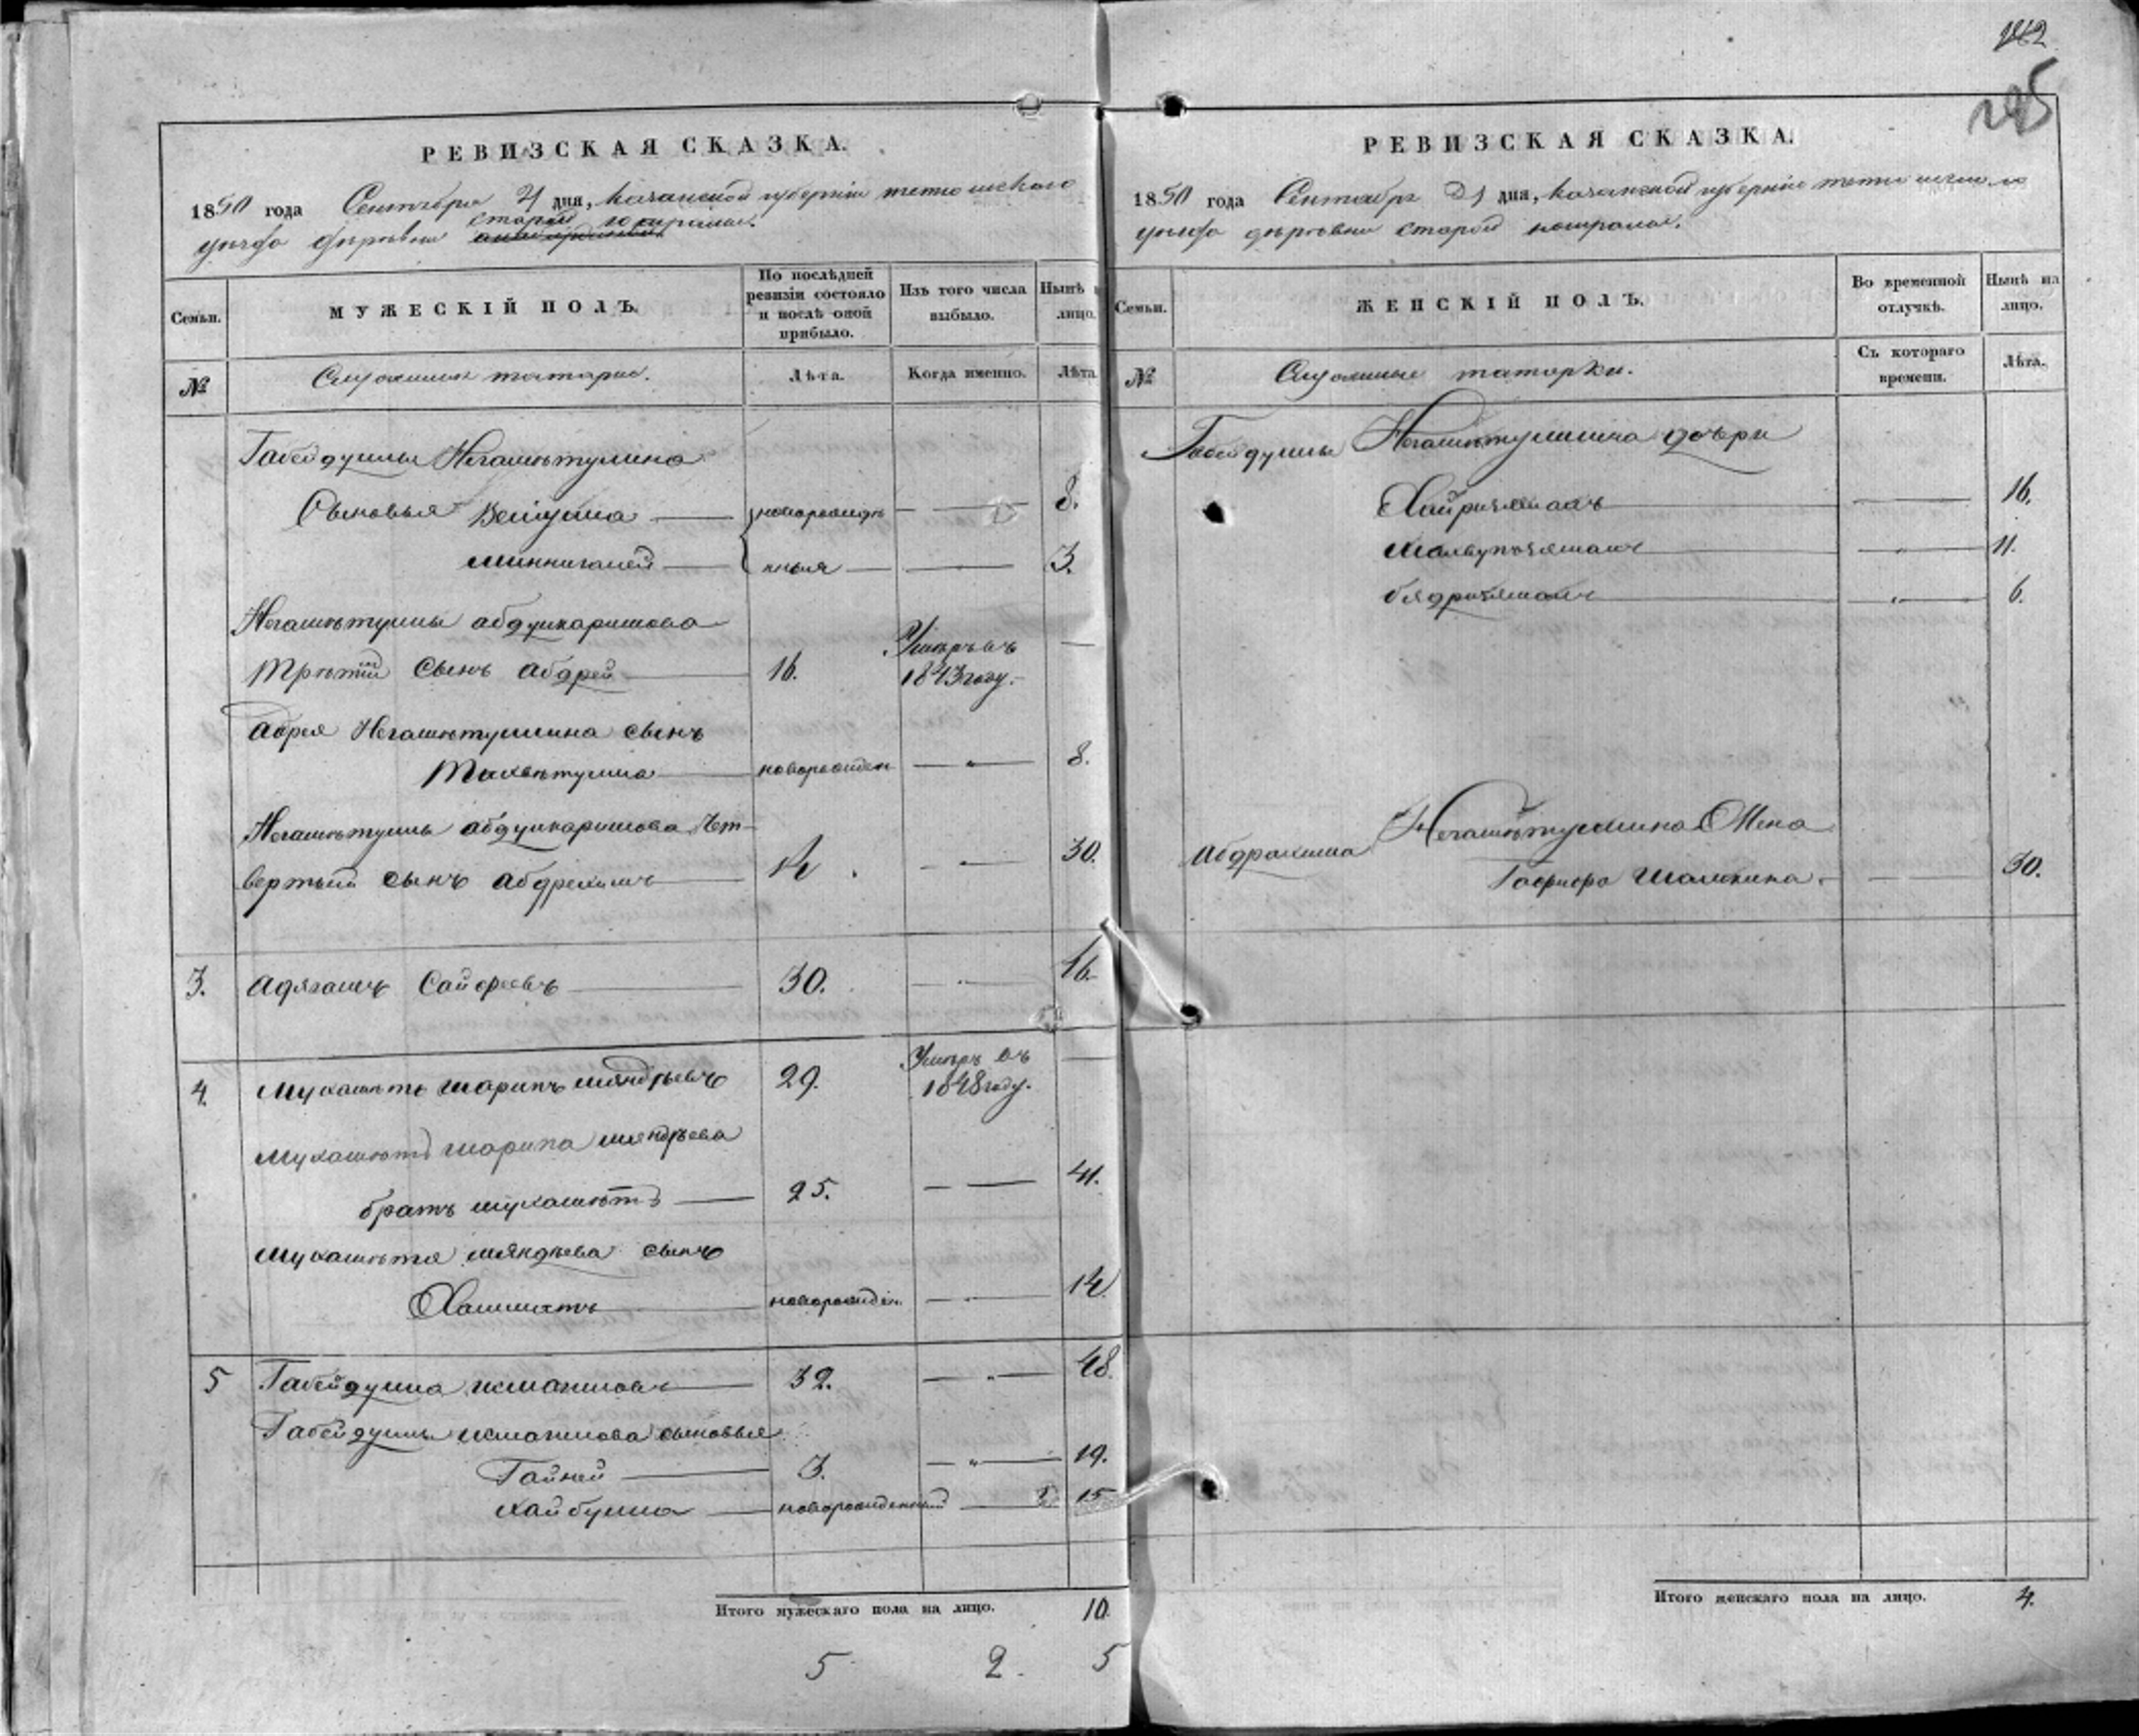 162
295
РЕВИЗСКАЯ СКАЗКА.
1850 года Сентября 21 дня, казанской губерніи тетюшскаго
старой
уезда деревни
МУЖЕСКІЙ ПОЛЪ.
По послѣдней ревизіи состояло и послѣ оной прибыло.
Изъ того числа выбыло.
Нынѣ
лицо.
Семьи.
№
татары.
Лѣта.
Когда именно.
Лѣта
Габейдуллы Негаметуллина
Сыновья Велиулла новорожде 8.
Миннигалей нныя 3.
Негаметуллы абдулкаримова
третій сынъ абдрей 16. Умеръ въ 1843 году.
Абрея Негаметуллина сынъ
новорожден 8.
Негаметуллы абдулкаримова чет-
вертый сынъ абдрехимъ 14. 30.
3. Адягамъ Сайфеевъ 30. 46.
4. Мухаметь шарипъ мяндеевъ 29. Умеръ въ 1848 году.
Мухаметь шарипа мяндеева
братъ мухаметь 25. 41.
Мухаметя мяндеева сынъ
новорожден. 14.
5 Габейдулла исмагиловъ 32. 48.
Габейдуллы исмагилова сыновья
Гайней 3. 19.
хайбулла новорожденный 15
Итого мужескаго пола на лицо. 10.
5 2. 5
РЕВИЗСКАЯ СКАЗКА.
1850 года Сентября 21 дня, казанской губерніи
уезда деревни старой
Семьи.
ЖЕНСКІЙ ПОЛЪ.
Во временной отлучкѣ.
Нынѣ на лицо.
№
татарки.
Съ котораго времени.
Лѣта.
Габейдуллы Негаметуллина дочери
16.
11.
бядризямалъ 6.
Абдрахима Негаметуллина Жена
30.
Итого женскаго пола на лицо. 4.